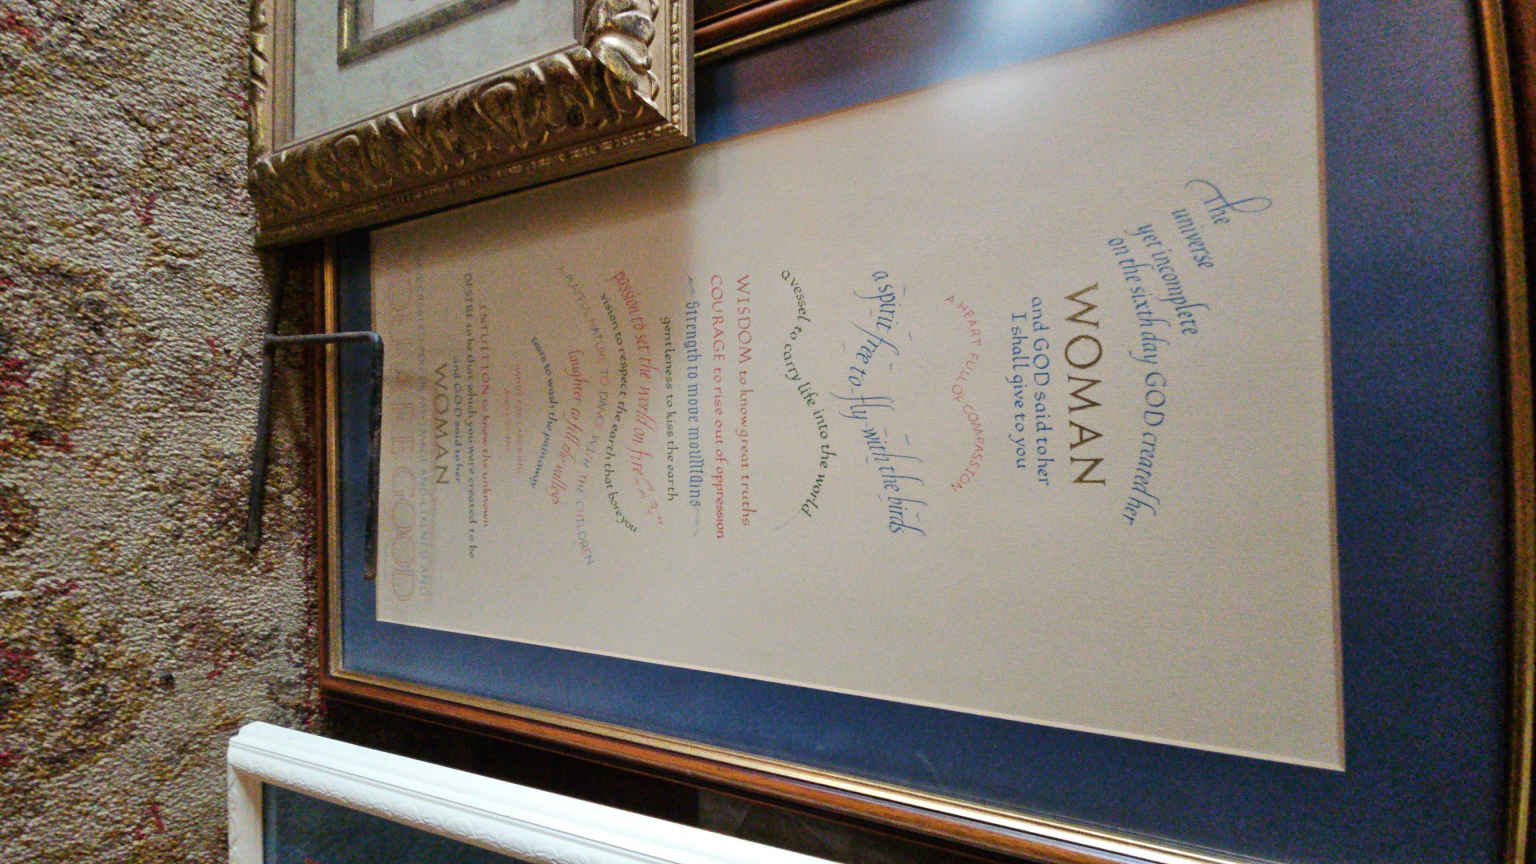 The
universe
yet incomplete
on the sixth day GOD created her
WOMAN
and GOD said to her
I shall give to you
A HEART FULL OF COMPASSION
a spirit free to fly with the birds
a vessel to carry life into the world
WISDOM to know great truths
COURAGE to rise out of oppression
Strength to move mountains
gentleness to kiss the earth
passion to set the world on fire
vision to respect the earth that bore you
TO DANCE WITH THE CHILDREN
laughter to fill the valleys
tears to wash the
INTUITION to know the unknown
DESIRE to be that which you were created to be
and GOD said to her
WOMAN
GOOD